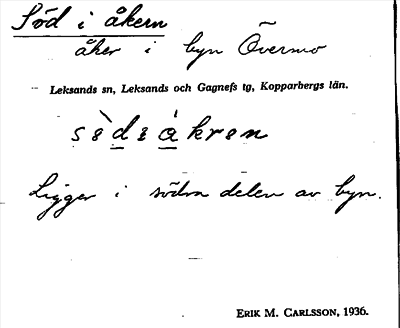 Söd i åkern
åker i byn Övermo
Leksands sn, Leksands och Gagnefs tg, Kopparbergs län.
Ligger i södra delen av byn.
ERIK M. CARLSSON, 1936.